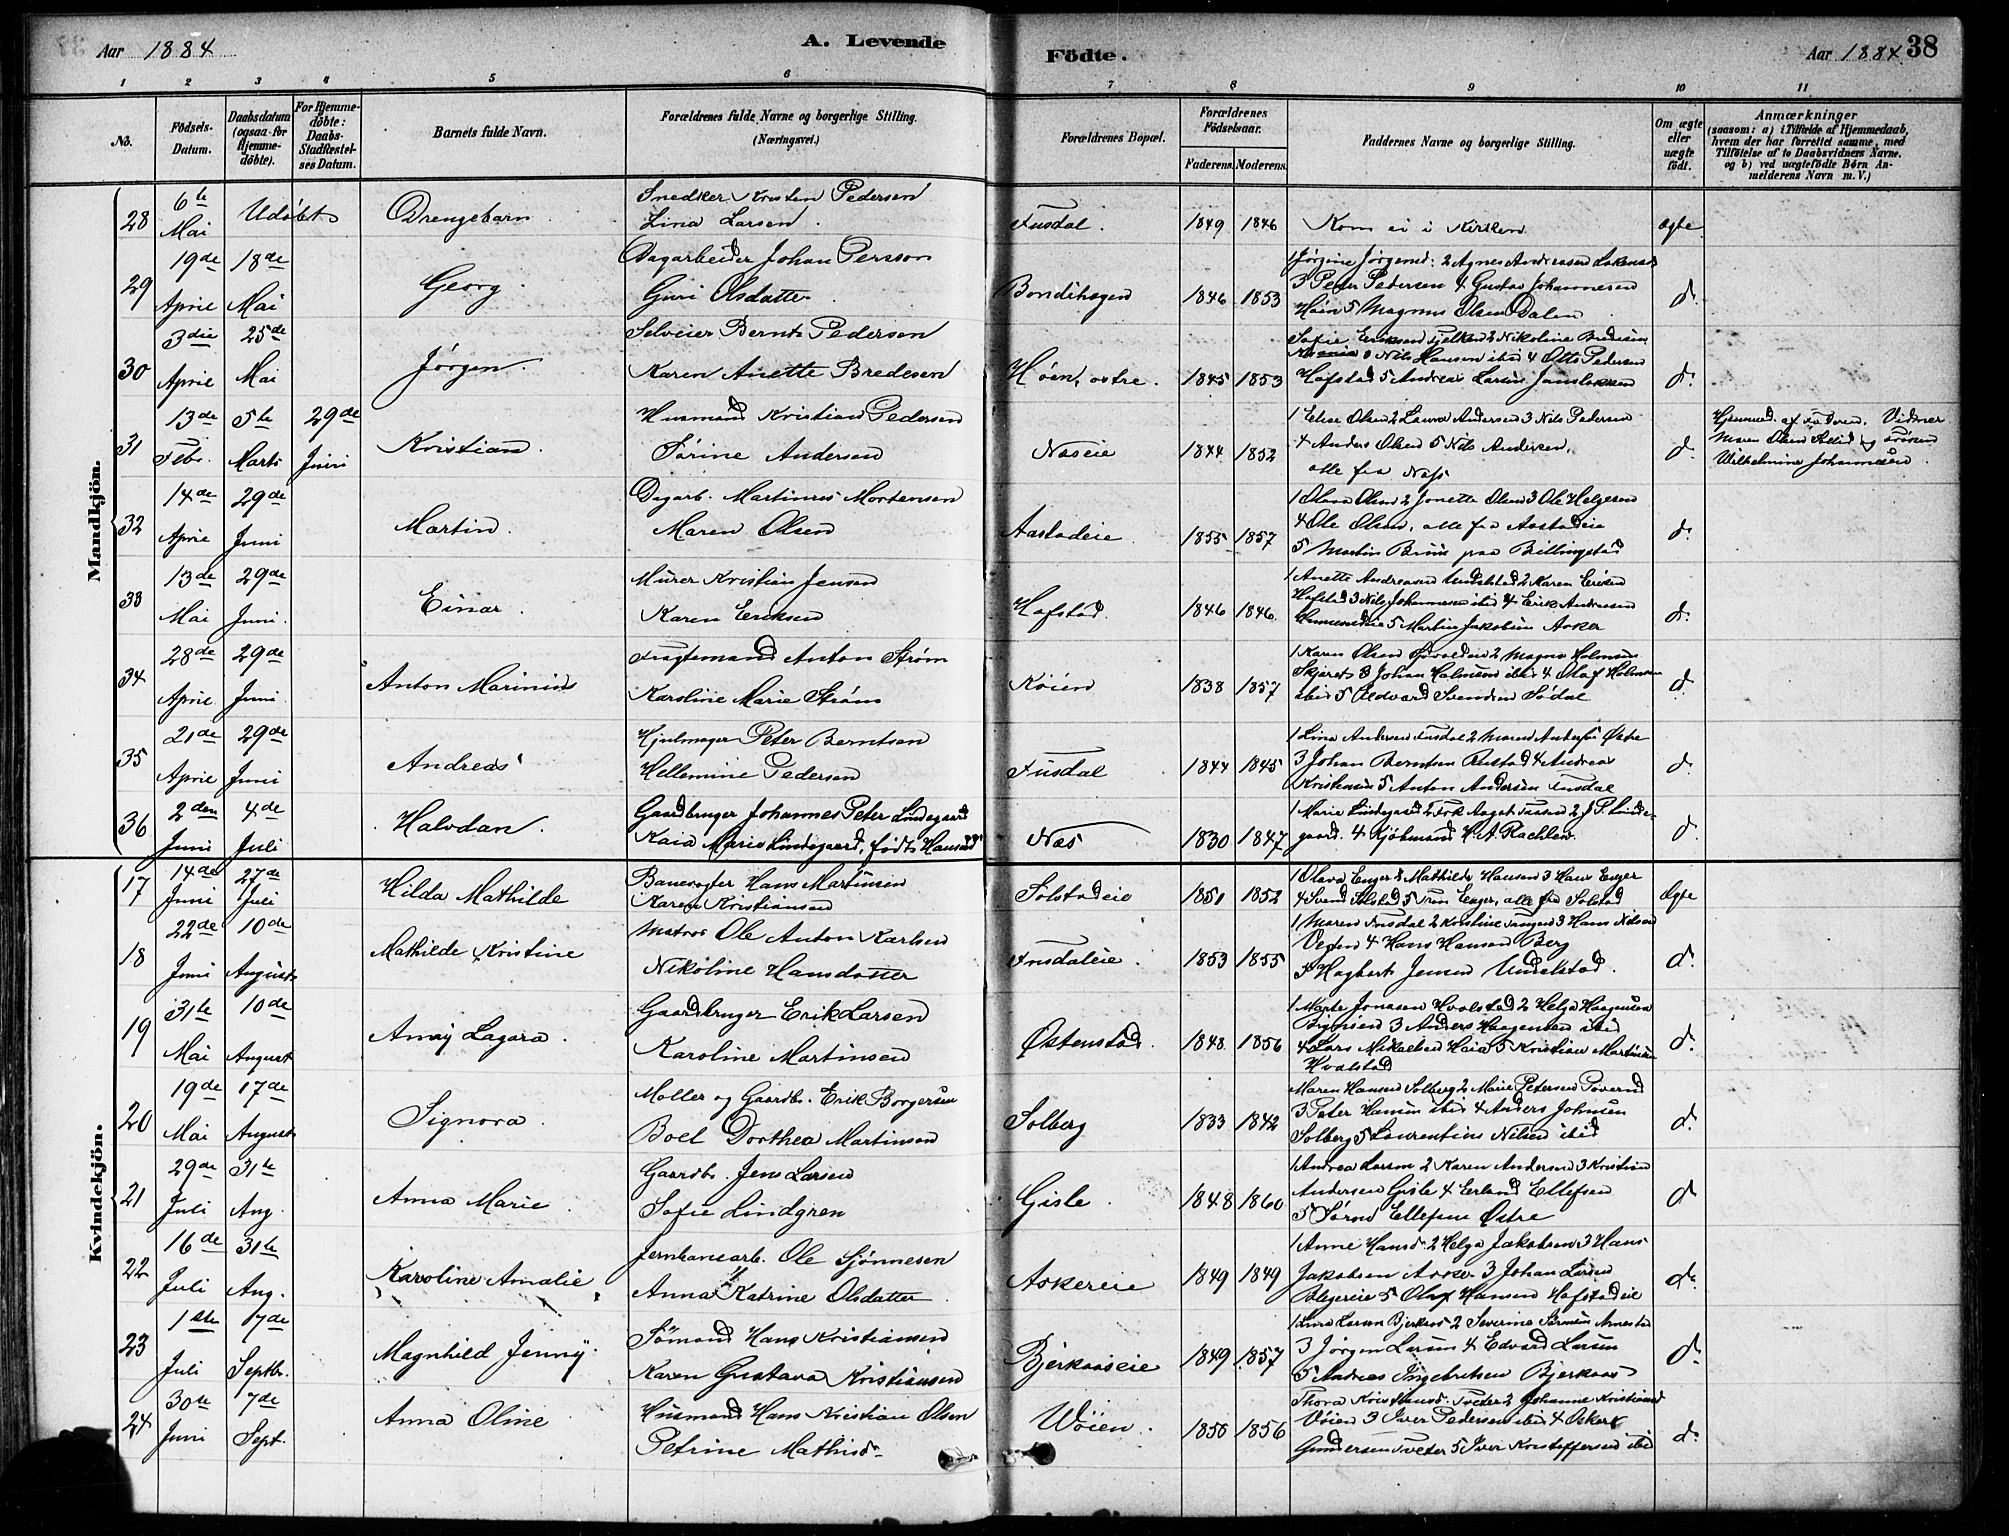 Aar 1884 A. Levende Födte. Aar 1884. 38
1 2 3 4 5 6 7 8 9 10 11
No. Födsels-Datum. Daabsdatum (ogsaa for Hjemme-döbte). For Hjemme-döbte: Daabs-Stadfæstel-ses Datum. Barnets fulde Navn. Forældrenes fulde Navne og borgerlige Stilling. (Næringsvei.) Forældrenes Bopæl. Forældrenes Födselsaar. Faderens. Moderens. Faddernes Navne og borgerlige Stilling. Om ægte eller uægte födt. Anmærkninger (saasom: a) i Tilfælde af Hjemmedaab, hvem der har forrettet samme, med Tilföielse af to Daabsvidners Navne, og b) ved uægtefödte Börn An-melderens Navn m. V.)
Mandkjön.
28 6te Mai Udøbt Drengebarn Snedker Kristen Pedersen
Lina Larsen. Fusdal. 1849 1846 Kom ei i Kirken ægte
29 19de April 18de Mai Georg. Dagarbeider Johan Persson
Guri Olsdatter Bondihagen 1846 1853 1 Jørgine Jørgensd. 2 Agnes Andreasen
3 Peter Pedersen 4 Gustav Johannesen
Høin 5 Magnus Olsen Dalen d.
30 3die April 25de Mai Jørgen. Selveier Bernt Pedersen
Karen Anette Bredesen Høen, østre. 1845 1853 Sofie Eriksen 2 Nikoline Bredesen
3 Nils Hansen ibid 4 Otto Pedersen
Hofstad 5 Andreas Larsen d.
31 13de Febr. 5te Marts 29de Juni Kristian. Husmand Kristian Pedersen
Sørine Andersen Næseie 1844 1852 1 Elise Olsen 2 Laura Andersen 3 Nils Pedersen
4 Anders Olsen 5 Nils Andersen,
alle fra Næs d. Hjemmed. af Faderen. Vidner
Maren Olsen og Frøken
Wilhelmine Johannesen
32 14de April 29de Juni Martin. Dagarb. Martinus Mortensen
Maren Olsen Aastadeie 1855 1857 1 Olava Olsen 2 Jonette Olsen 3 Ole Helgesen
4 Ole Olsen, alle fra Aastadeie
5 Martin Bruun paa Billingstad d.
33 13de Mai 29de Juni. Einar. Murer Kristian Jensen
Karen Eriksen Hofstad 1846 1846 1 Anette Andreasen Undelstad 2 Karen Eriksen
Hofstad 3 Nils Johannesen ibid 4 Erik Andresen
5 Martin Jakobsen Asker d.
34 28de April 29de Juni. Anton Marinius Fragtemand Anton Strøm
Karoline Marie Strøm Køien 1838 1857 1 Karen Olsen 2 Magna Holmsen
Skjæret 3 Johan Holmsen ibid 4 Olaf Holmsen
ibid 5 Edvard Svendsen d.
35 21de April 29de Juni Andreas Hjulmager Peter Berntsen
Hellemine Pedersen Fusdal 1844 1845 1 Lina Andersen Fusdal 2 Maren Østre
3 Johan Berntsen 4 Andreas
Kristensen 5 Anton Andersen Fusdal d.
36 2den Juni 4de Juli Halvdan. Gaardbruger Johannes Peter Lindegaard
Kaia Marie Lindegaard, født Hansen Næs 1830 1847 1 Marie Lindegaard 2 Frk Aagot 2 J. P. Linde-
gaard. 4 Kjøbmand H. A. d.
Kvindekjön.
17 14de Juni 27de Juli Hilda Mathilde Banevogter Hans Martinsen
Karen Kristiansen Solstadeie 1851 1852 1 Olava Enger 2 Mathilde Hansen 3 Hans Enger
4 Svend Solstad 5 Enger, alle fra Solstad Ægte
18 22de Juni 10de August Mathilde Kristine Matros Ole Anton Karlsen
Nikoline Hansdatter Fusdaleie. 1853 1855 1 Maren Fusdal 2 Kristine 3 Hans Nilsen
4 Hans Hansen Berg
5 Hagbart Jensen Undelstad. d.
19 31te Mai 10de August Amay Lagara. Gaardbruger Erik Larsen
Karoline Martinsen Østenstad. 1848 1856 1 Marte Jonasen Hvalstad 2 Helga Haagensen
3 Anders Haagensen ibid
4 Lars Mikaelsen 5 Kristian Martinsen
Hvalstad d.
20 19de Mai 17de August Signora. Møller og Gaardb. Erik Borgersen
Boel Dorthea Martinsen Solberg 1833 1842 Maren Hansen Solberg 2 Marie Petersen
3 Peter Hansen ibid 4 Anders Johnsen
Solberg 5 Laurentius Nilsen ibid d.
21 29de Juli 31te Aug. Anna Marie Gaardb. Jens Larsen
Sofie Lindgren Gisle. 1848 1860 1 Andrea Larsen 2 Karen Andersen 3 Kristian
Andersen Gisle 4 Erland Ellefsen
5 Søren Ellefsen Østre d
22 16de Juli 31te Aug. Karoline Amalie Jernbanearb. Ole Sjønnesen
Anna Katrine Olsdatter Askereie 1849 1849 1 Anne Hansd. 2 Helga Jakobsen 3 Hans
Jakobsen Asker 3 Johan Larsen
5 Olaf Hansen Hofstadeie d.
23 1ste Juli 7de Septbr. Magnhild Jenny. Sømand Hans Kristiansen
Karen Gustava Kristiansen Bjerkaaseie 1849 1857 1 Lina Larsen Bjerkaas 2 Severine
3 Jørgen Larsen 4 Edvard Larsen
5 Andreas Ingebretsen Bjerkaas d.
24 30te Juni 7de Sept. Anna Oline Husmand Hans Kristian Olsen
Petrine Mathisd. Wøien. 1856 1856 Thora Kristiansd. Tveter 2 Johanne Kristiansd
Vøien 3 Iver Pedersen ibid 4 Oskar
Gundersen Tveter 5 Iver Kristoffersen ibid d.